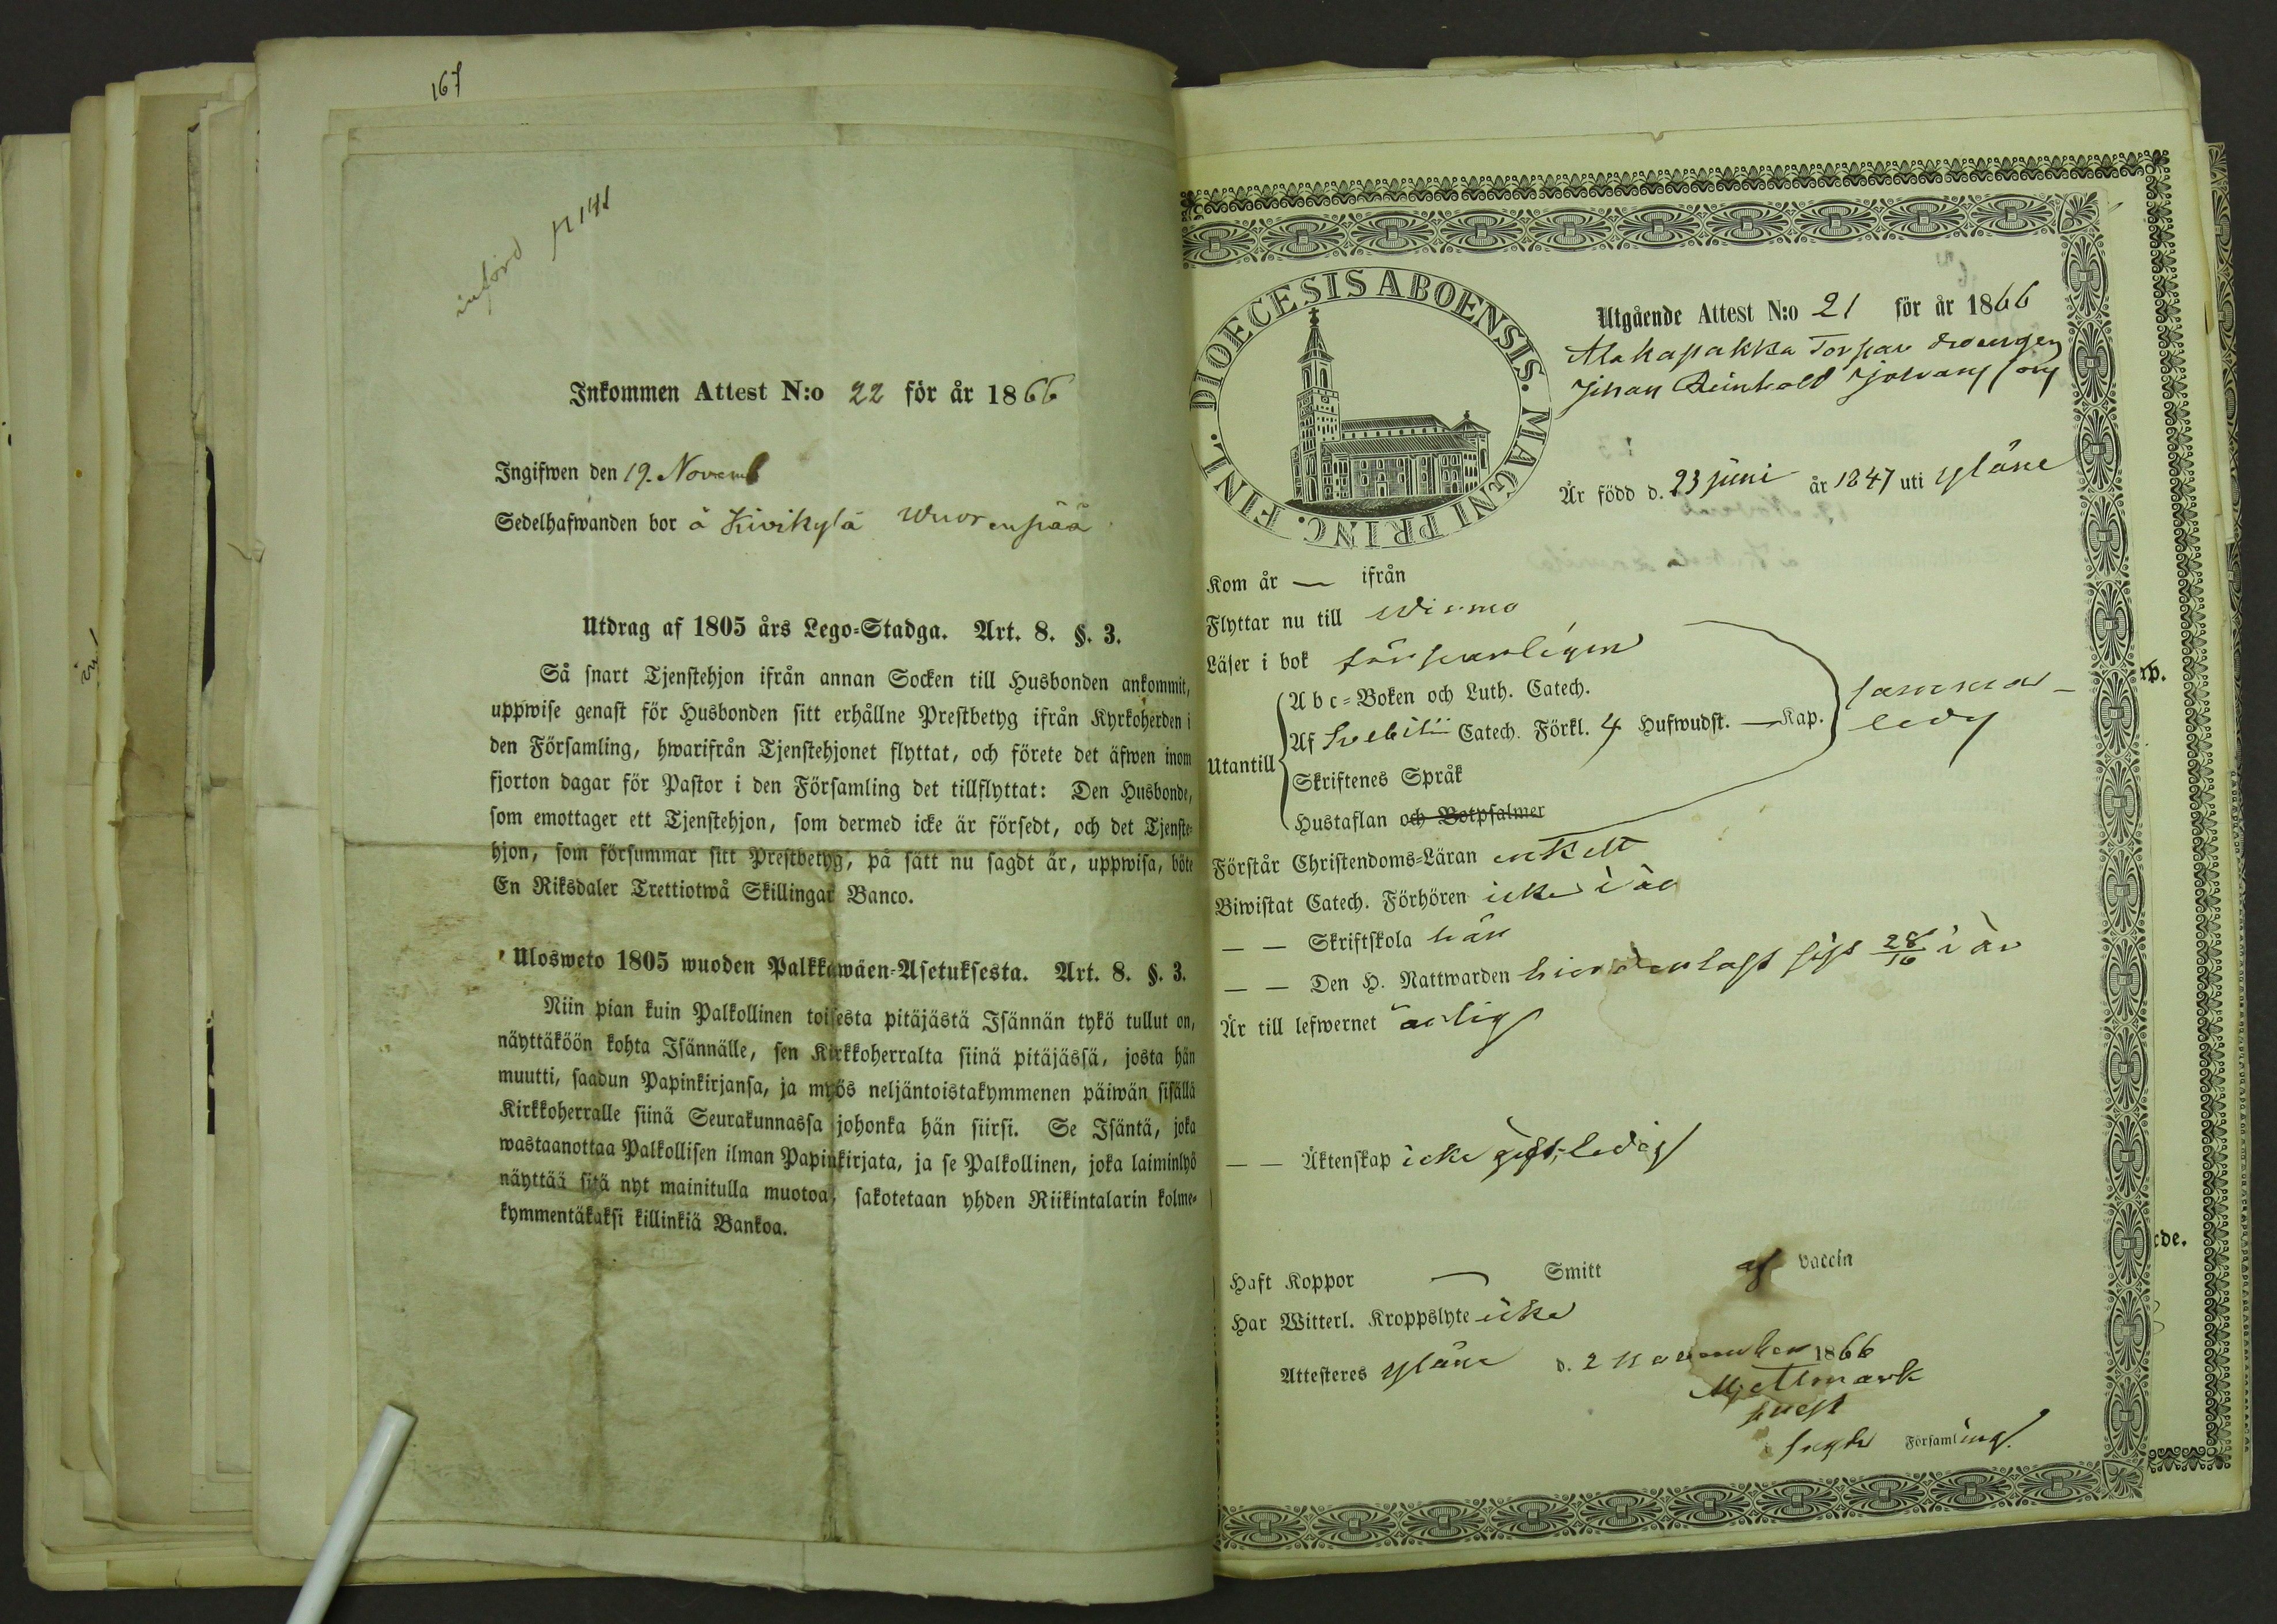 167
införd p 141
Inkommen Attest N:o 22 för år 1866
Ingifwen den 19. Novemb
Sedelhafwanden bor å Kivikylä Wuorenpää
Utdrag af 1805 års Lego-Stadga. Art. 8. §. 3.
Så snart Tjenstehjon ifrån annan Socken till Husbonden ankommit,
uppwise genast för Husbonden sitt erhållne Prestbetyg ifrån Kyrkoherden i
den Församling, hwarifrån Tjenstehjonet flyttat, och förete det äfwen inom
fjorton dagar för Pastor i den Församling det tillflyttat: Den Husbonde,
som emottager ett Tjenstehjon, som dermed icke är försedt, och det Tjenste-
hjon, som försummar sitt Prestbetyg, på sätt nu sagdt är, uppwisa, böte
En Riksdaler Trettiotwå Skillingar Banco.
Ulosweto 1805 wuoden Palkkawäen-Asetuksesta. Art. 8. §. 3.
Niin pian kuin Palkollinen toisesta pitäjästä Isännän tykö tullut on,
näyttäköön kohta Isännälle, sen Kirkkoherralta siinä pitäjässä, josta hän
muutti, saadun Papinkirjansa, ja myös neljäntoistakymmenen päiwän sisällä
Kirkkoherralle siinä Seurakunnassa johonka hän siirsi. Se Isäntä, joka
wastaanottaa Palkollisen ilman Papinkirjata, ja se Palkollinen, joka laiminlyö
näyttää sitä nyt mainitulla muotoa, sakotetaan yhden Riikintalarin kolme-
kymmentäkaksi killinkiä Bankoa.
DIOECESIS ABOENSIS. MAGNI PRINC. FINL.
Utgående Attest N:o 21 för år 1866
Alakapakka Torpar drengen
Johan Reinhold Johansson
Är född d. 23 juni år 1847 uti Yläne
Kom år — ifrån
Flyttar nu till Wirmo
Läser i bok försvarligen
Utantill
Abc-Boken och Luth. Catech.
Af Svebilii Catech. Förkl. 4 Hufwudst. — Kap.
Skriftenes Språk
Hustaflan och Botpsalmer
samma-
ledy
Förstår Christendoms-Läran enkelt
Biwistat Catech. Förhören icke i år
— — Skriftskola här
— — Den H. Nattwarden sist 28/10 i år
Är till lefwernet ärlig
— — Äktenskap icke gift, ledig
Haft Koppor — Smitt af vaccin
Har Witterl. Kroppslyte icke
Attesteres Yläne d. 2 November 1866
Församling.
rp.
rde.